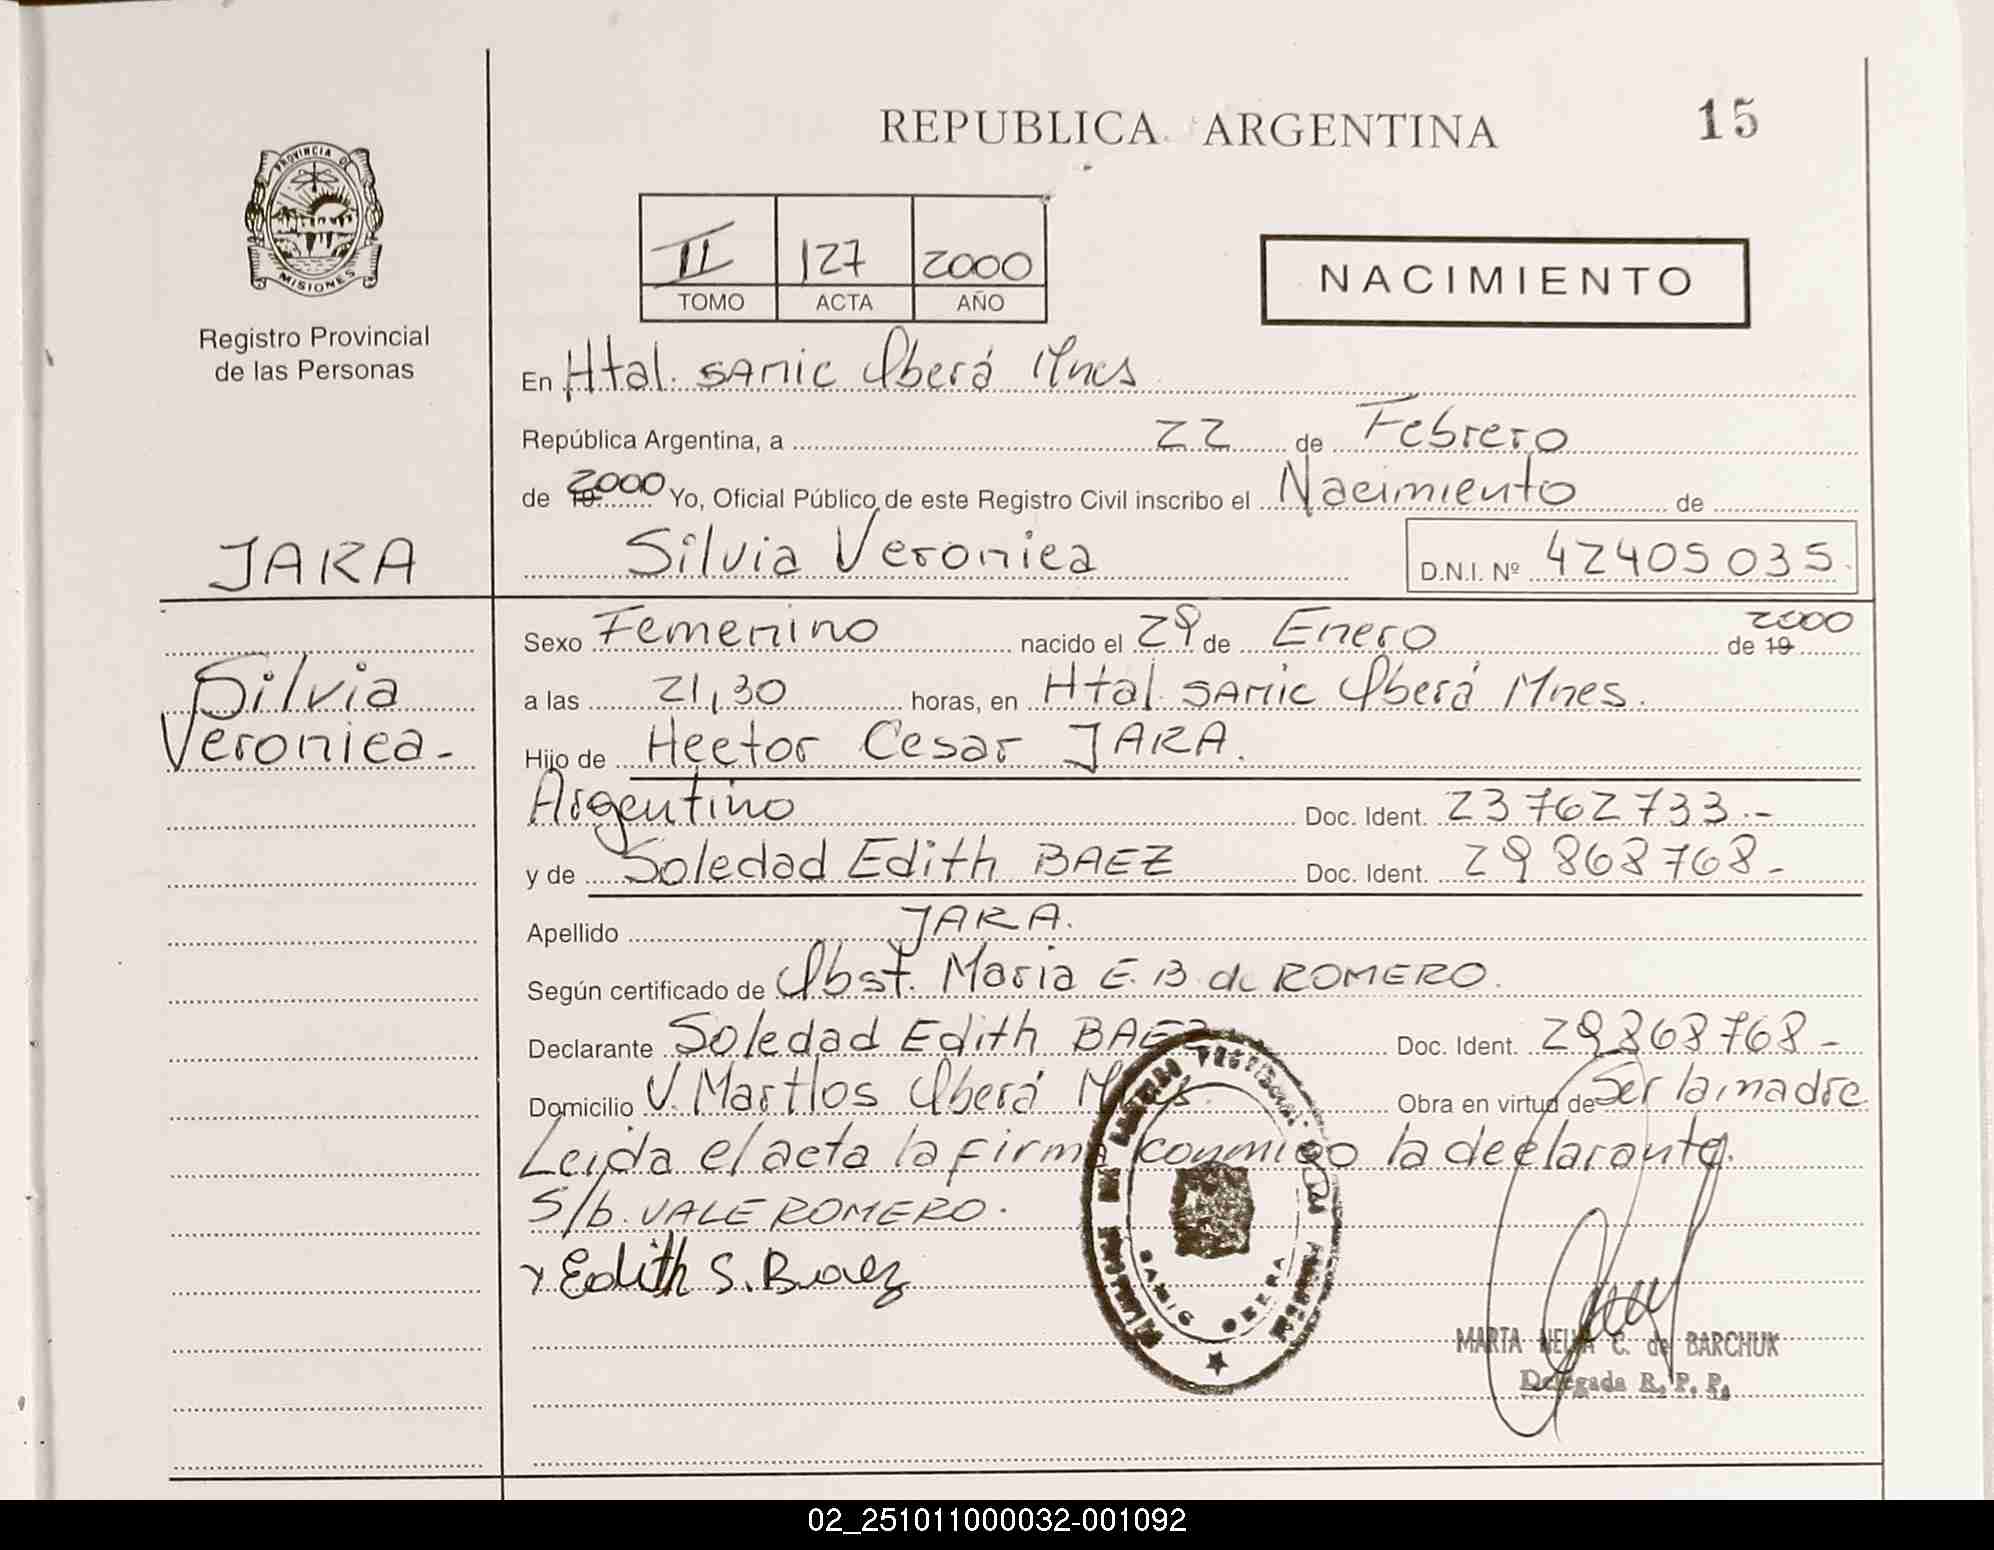 REPUBLICA ARGENTINA
15
PROVINCIA DE
MISIONES
Registro Provincial
de las Personas
II 127 2000
TOMO ACTA AÑO
NACIMIENTO
En Htal. SAMIC Oberá Mnes
República Argentina, a 22 de Febrero
de 19 2000 Yo, Oficial Público de este Registro Civil inscribo el Nacimiento de
JARA
Silvia Veronica D.N.I. Nº 42405035.
Silvia
Veronica-
Sexo Femenino nacido el 29 de Enero de 19 2000
a las 21,30 horas, en Htal. SAMIC Oberá Mnes.
Hijo de Hector Cesar JARA.
Argentino Doc. Ident. 23762733.-
y de Soledad Edith BAEZ Doc. Ident. 29868768-
Apellido JARA.
Según certificado de Obst. Maria E. B de ROMERO.
Declarante Soledad Edith BAEZ Doc. Ident. 29868768-
Domicilio V. Martlos Oberá Mnes. Obra en virtud de Ser la madre
Leida el acta la firma conmigo la declarante.
S/b. VALE ROMERO.
x Edith S. Baez
SAMIC OBERA
MARTA NELIA C. de BARCHUK
Delegada R. P. P.
02_251011000032-001092